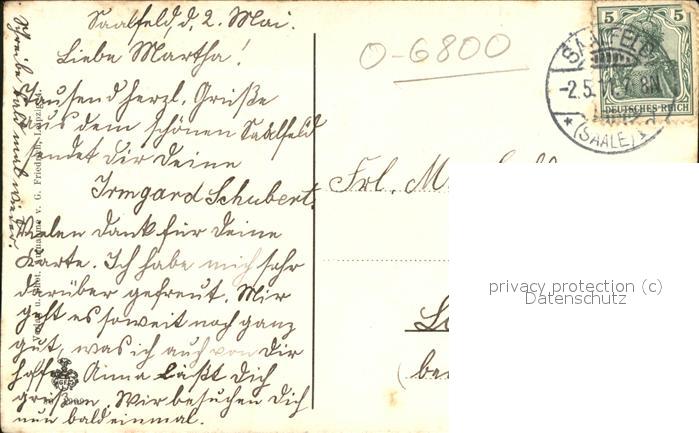 Saalfeld, d. 2. Mai.
Liebe Martha!
Tausend herzl. Grüße
aus dem schönen Saalfeld
sendet dir deine
Irmgard Schubert.
Vielen Dank für deine
Karte. Ich habe mich sehr
darüber gefreut. Mir
geht es soweit noch ganz
gut, was ich auch von dir
hoffe. Anna laßt dich
grüßen. Wir besuchen dich
nun bald einmal.
Schreibe bald mal wieder.
G. Friedrich, Leipzig
O-6800
5 5
DEUTSCHES REICH
SAALFELD
-2.5. 7-8N
* (SAALE)
Frl. M
privacy protection (c)
Datenschutz